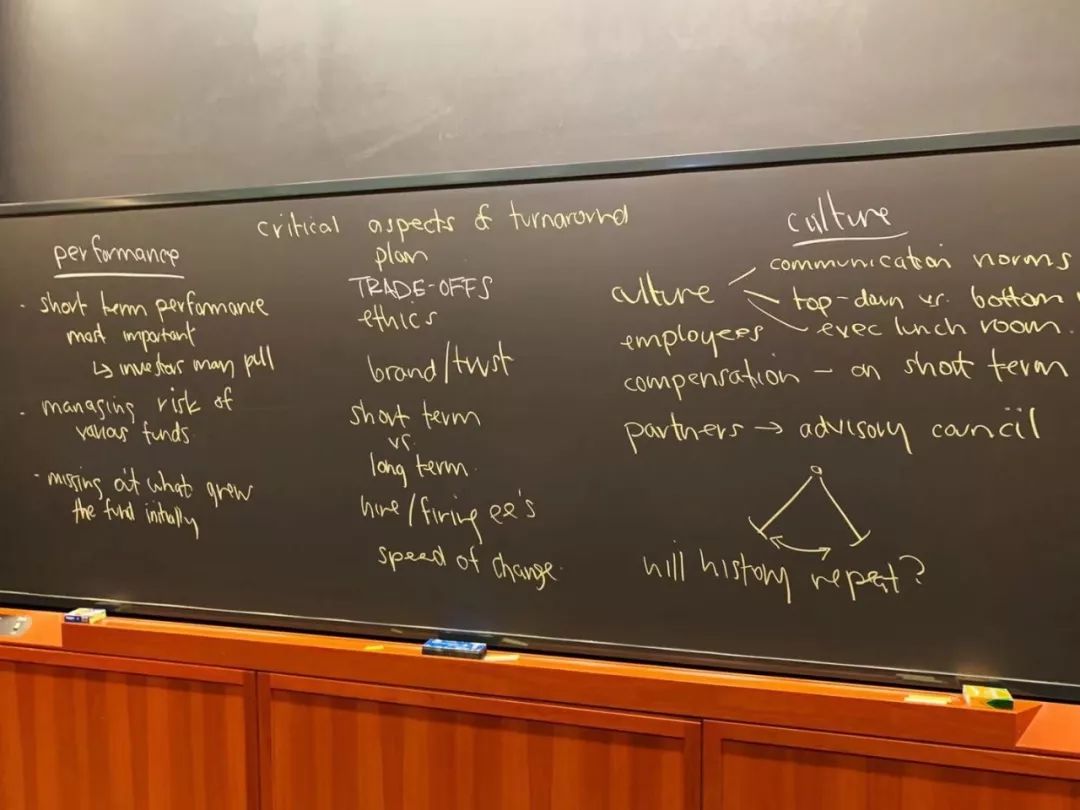 performance
· short term performance
most important
↳ investors may pull
· managing risk of
various funds
· missing at what grew
the fund initially
critical aspects of turnaround
plan
TRADE-OFFS
ethics
brand/trust
short term
vs.
long term.
hire/firing ee's
speed of change.
culture
culture
communication norms
top-down vs. bottom
exec lunch room.
employees
compensation – on short term
partners → advisory council
will history repeat?